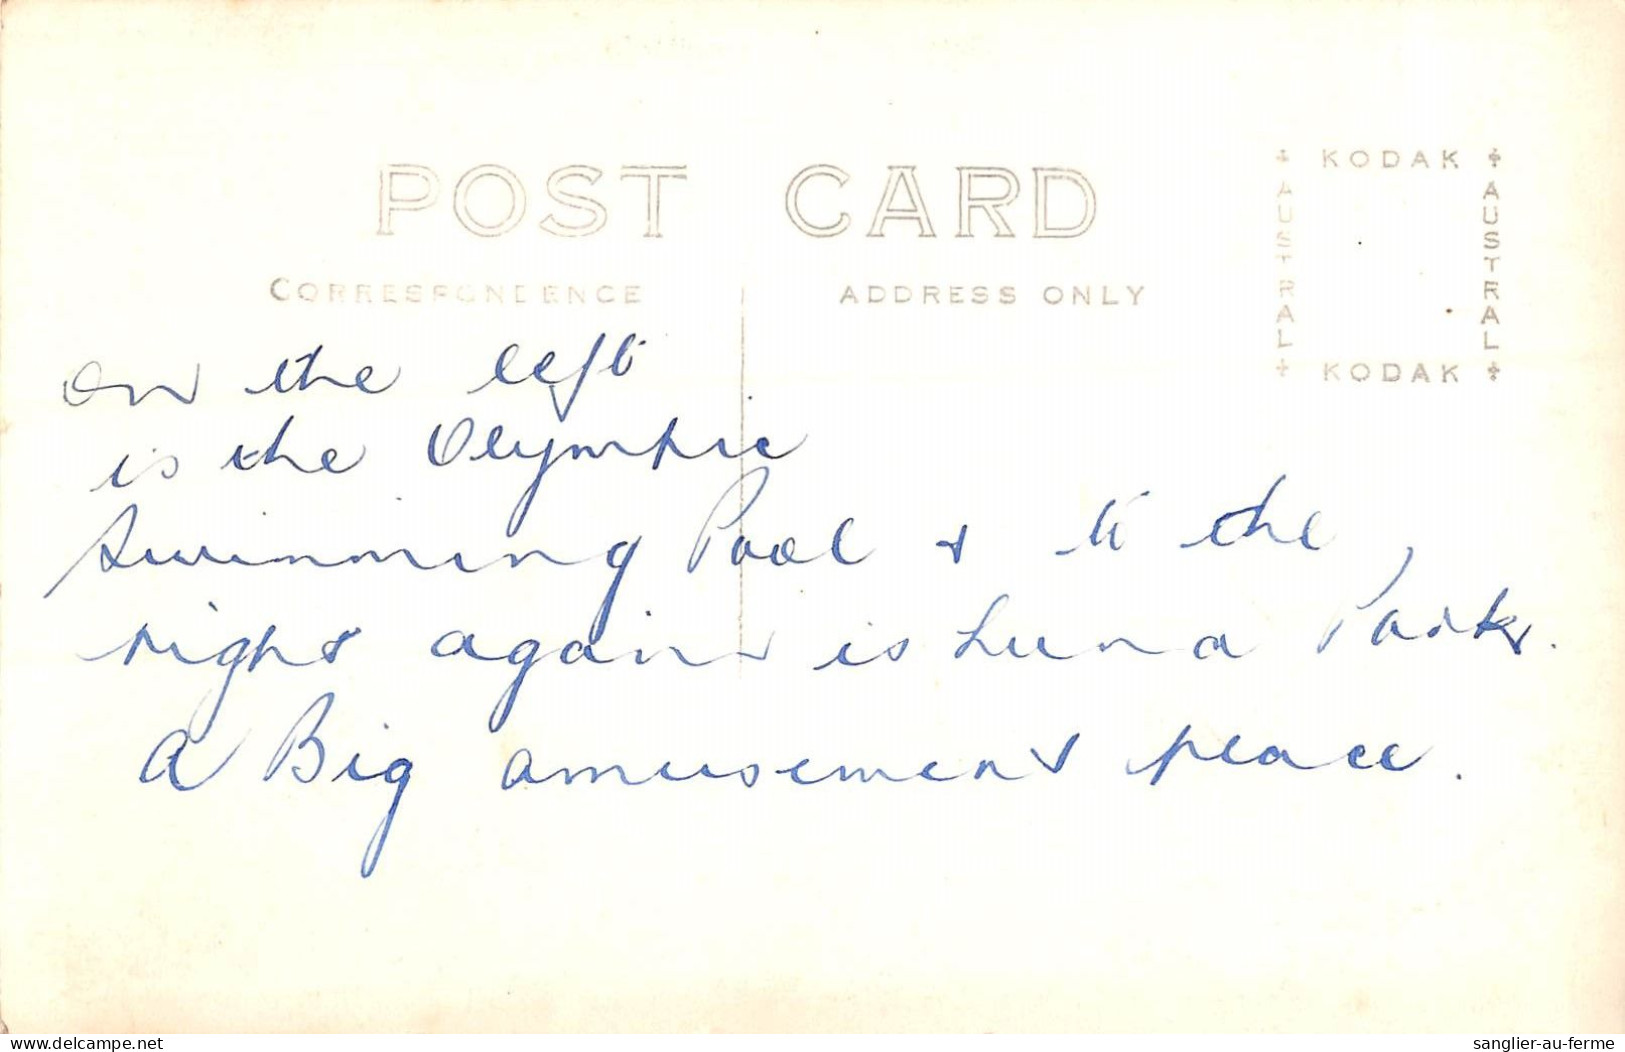 POST CARD
CORRESPONDENCE
ADDRESS ONLY
KODAK
AUSTRAL
AUSTRAL
KODAK
on the left
is the Olympic
Swimming Pool & to the
right again is Luna Park.
A Big amusement place.
www.delcampe.net
sanglier-au-ferme